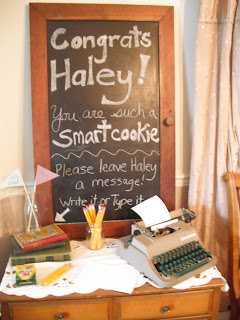 Congrats
Haley!
You are such a
Smart cookie
Please leave Haley
a message!
Write it or Type it